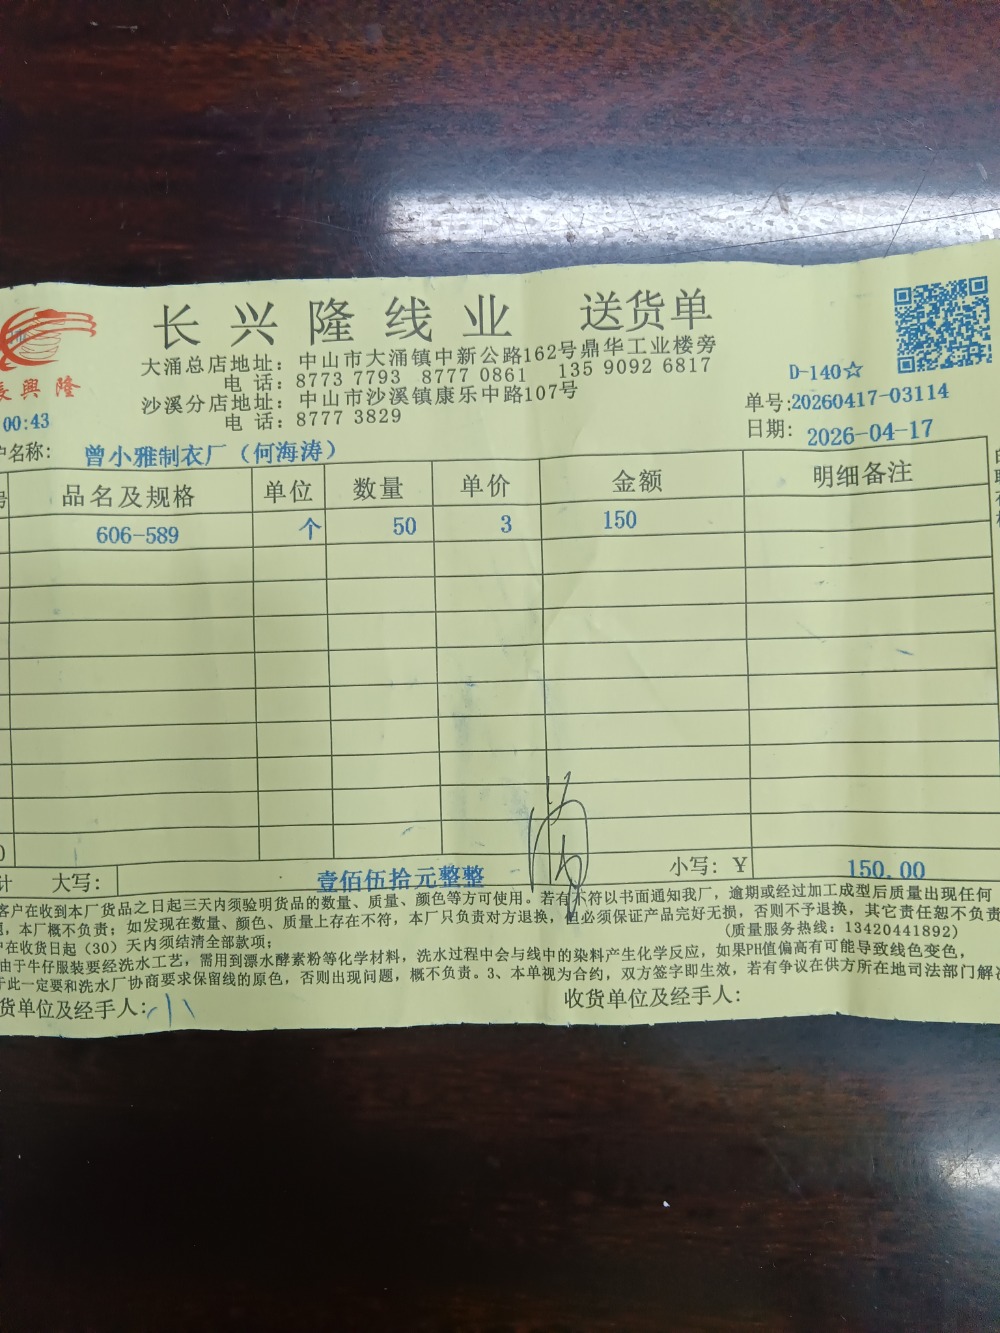 长兴隆线业 送货单
大涌总店地址：中山市大涌镇中新公路162号鼎华工业楼旁
电 话：8773 7793 8777 0861 135 9092 6817
沙溪分店地址：中山市沙溪镇康乐中路107号
电 话：8777 3829
長興隆
00:43
D-140☆
单号:20260417-03114
日期: 2026-04-17
户名称: 曾小雅制衣厂（何海涛）
号 品名及规格 单位 数量 单价 金额 明细备注
606-589 个 50 3 150
计 大写: 壹佰伍拾元整整 小写: ¥ 150.00
客户在收到本厂货品之日起三天内须验明货品的数量、质量、颜色等方可使用。若有不符以书面通知我厂，逾期或经过加工成型后质量出现任何
，本厂概不负责；如发现在数量、颜色、质量上存在不符，本厂只负责对方退换，但必须保证产品完好无损，否则不予退换，其它责任恕不负责
户在收货日起（30）天内须结清全部款项； (质量服务热线：13420441892)
由于牛仔服装要经洗水工艺，需用到漂水酵素粉等化学材料，洗水过程中会与线中的染料产生化学反应，如果PH值偏高有可能导致线色变色，
于此一定要和洗水厂协商要求保留线的原色，否则出现问题，概不负责。3、本单视为合约，双方签字即生效，若有争议在供方所在地司法部门解决
货单位及经手人: 收货单位及经手人: